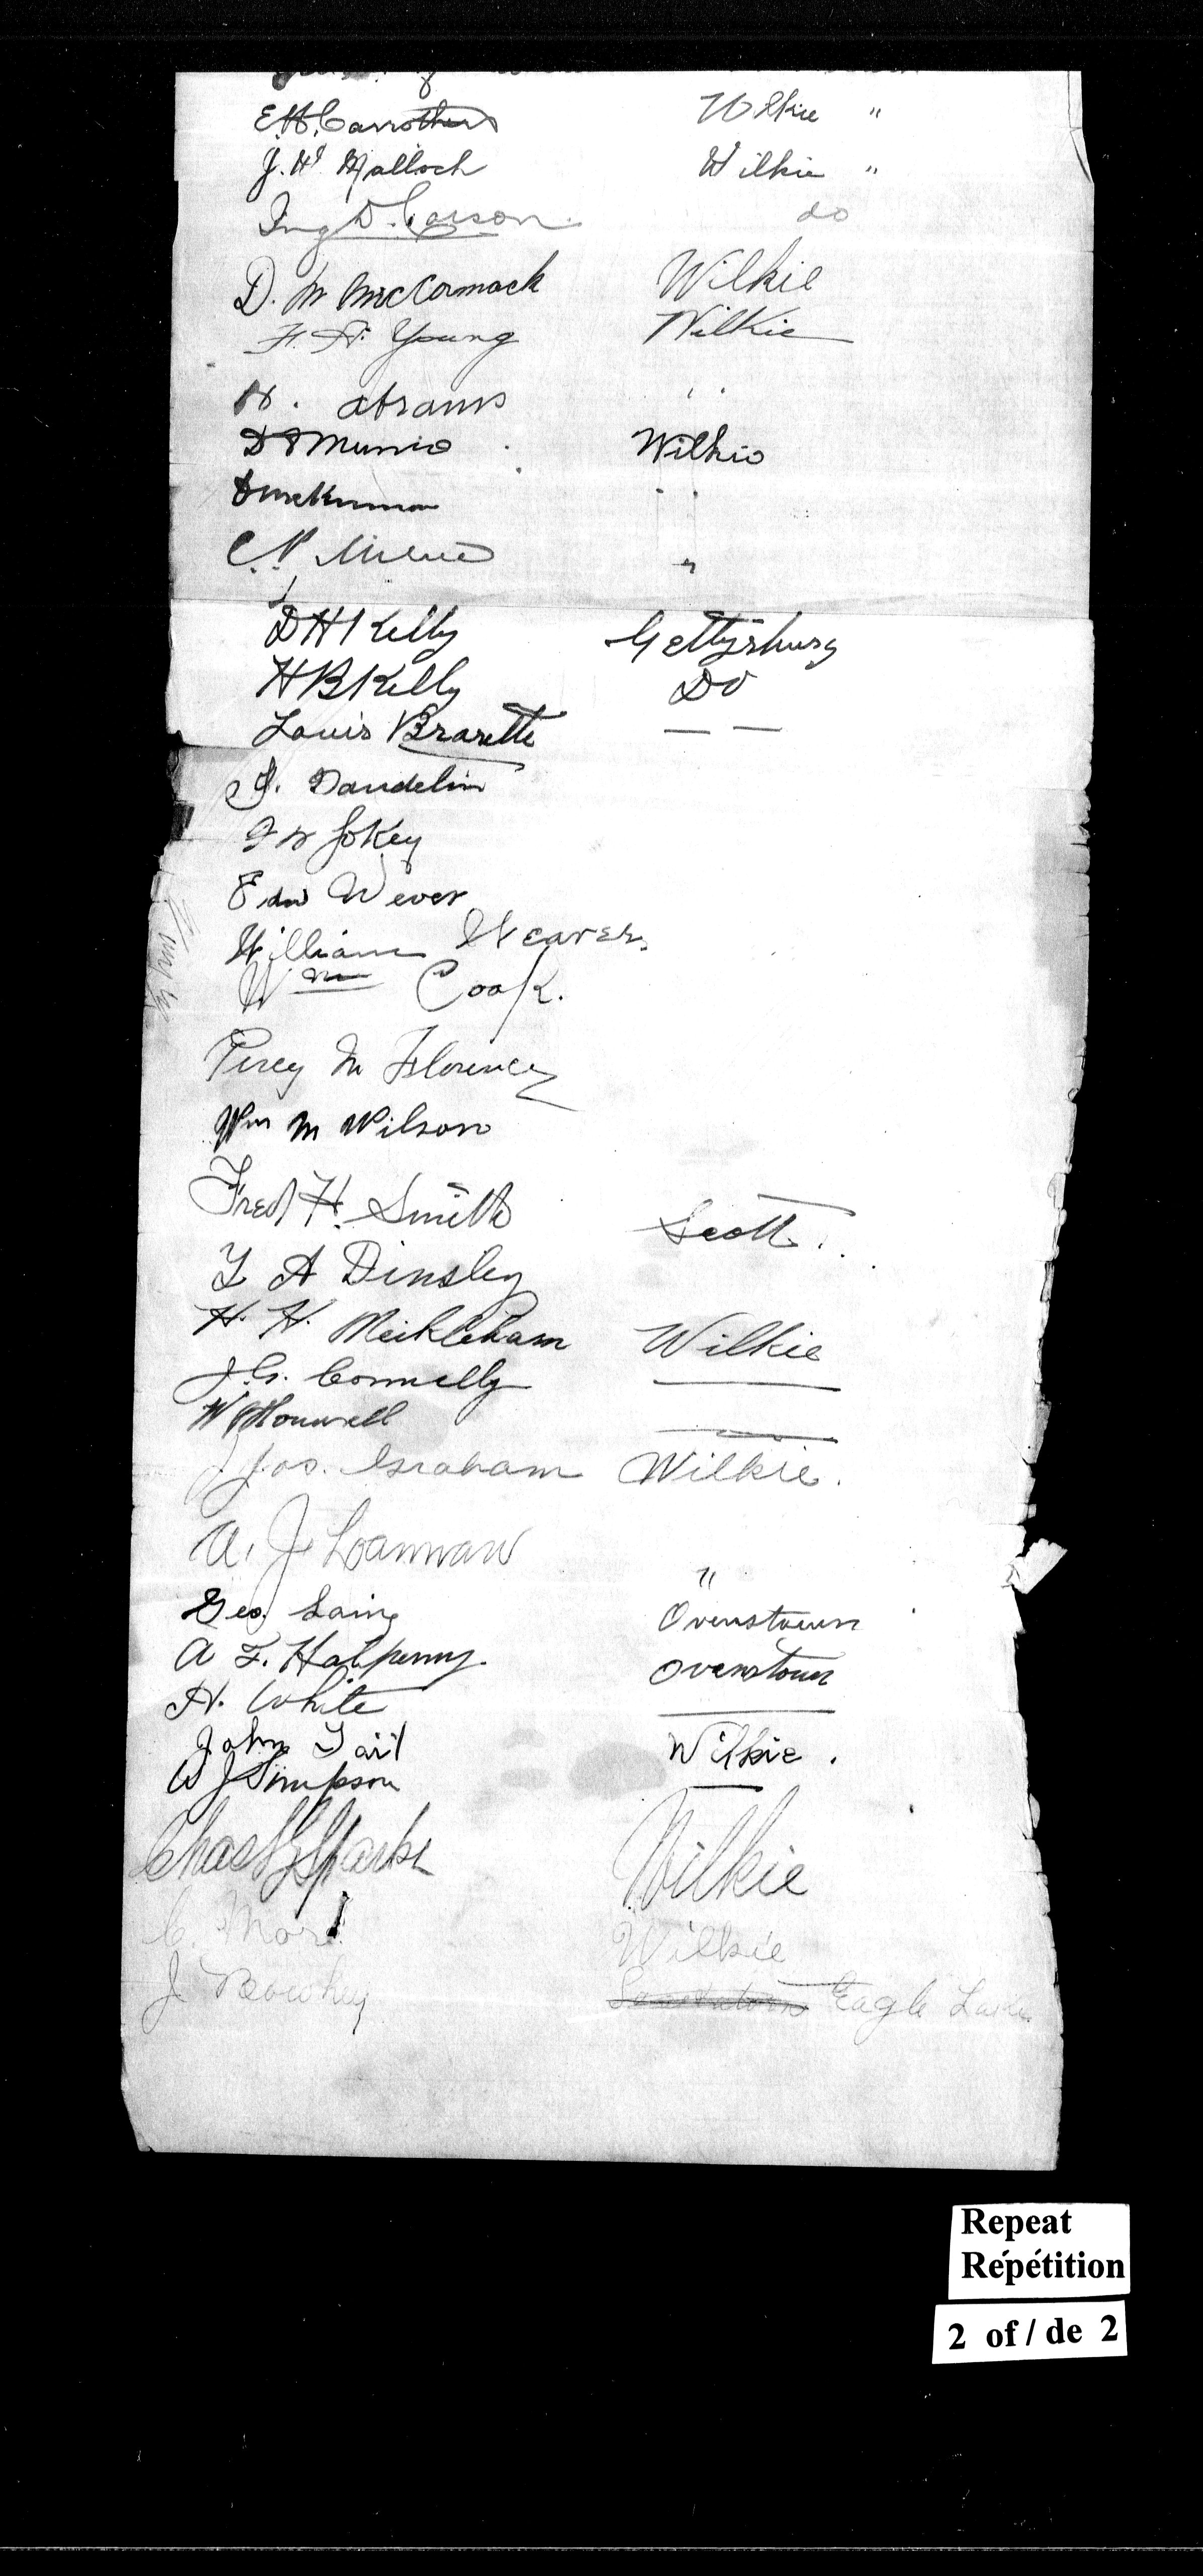 E.H. Carrothers Wilkie "
J. H. Malloch Wilkie "
D. Carson do
D. M McCormack Wilkie
F. A. Young Wilkie
H. Abrams " "
D Munro Wilkio
" "
C. P. Milne "
D H Kelly Gettysburg
H B Kelly Do
Louis Brasette — —
J. Dandelin
Jokey
Edw Wever
William Weaver.
Wm Cook.
Percy M Florence
Wm M Wilson
Fred H. Smith Scott.
T A Dinsley
H. H. Meikleham Wilkie
J. G. Connelly
W
Jas. Graham Wilkie.
A. J. "
Geo. Laing Ovenstown
A F. Halpenny. Ovenstown
H. White
John Tait Wilkie.
W J Simpson
Chas Sparks Wilkie
C. Wilkie
J Saskatoon Eagle Lake
Repeat
Répétition
2 of / de 2